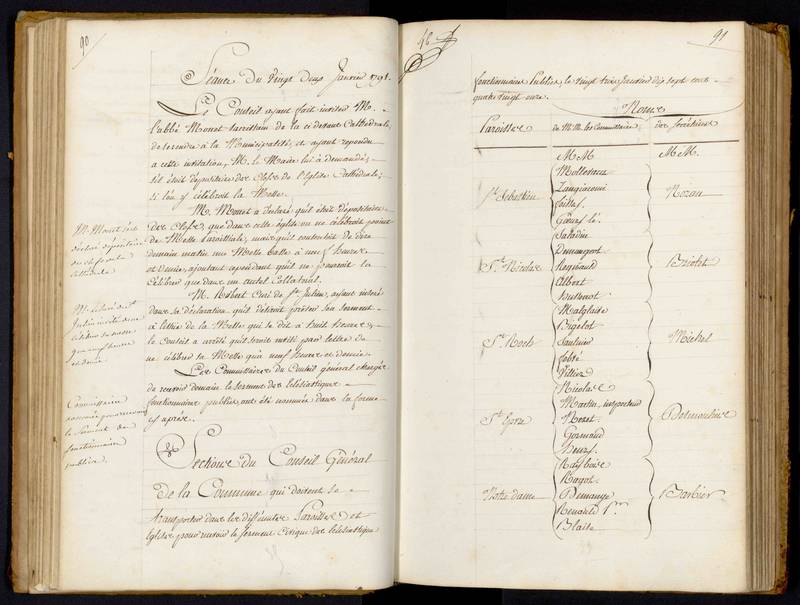 90
Séance Du Vingt Deux Janvier 1791.
Le Conseil ayant fait inviter M.
l'abbé Monet sacristain de la ci devant Cathédrale,
de se rendre à la Municipalité, et ayant repondu
a cette invitation, M. le Maire lui à demandé,
s'il était dépositaire des Clefs de l'Eglise Cathédrale;
si l'on y célébroit la Messe.
M. Monet a déclaré qu'il était dépositaire
des Clefs, que dans cette église on ne célébroit point
de Messe Paroissiale, mais qu'il contentoit de dire
demain matin une Messe basse à neuf heures
et demie, ajoutant cependant qu'il ne pouvoit la
célébrer que dans un autel Collatéral.
M. Robert Curé de St. Julien, ayant inséré
dans sa déclaration qu'il désiroit prêter son serment
à l'issue de la Messe qui se dit à huit heures,
le Conseil a arrêté qu'il seroit invité par lettre de
ne célébrer sa Messe qu'à neuf heures et demie.
Les Commissaires du Conseil général chargés
de recevoir demain le serment des Eclésiastiques
fonctionnaires publics, ont été nommés dans la forme
cy après.
Sections du Conseil Général
de la Commune qui doivent se
transporter dans les différentes Paroisses et
Eglises pour recevoir le serment civique des Eclésiastiques
M. Monet
déclaré dépositaire
des clefs de la
Cathédrale
M. le Curé de St.
Julien invité de ne
célébrer sa messe
qu'à neuf heures
et demie.
Commissaires
nommés pour recevoir
le Serment des
fonctionnaires
publics.
91
fonctionnaires Publics, le vingt trois Janvier dix sept cent
quatre vingt onze.
Noms
Paroisses de M.M. les Commissaires des Secrétaires
M M M M.
St. Sebastien Mollevaut Zangiacomi Nozan
Saladin
St. Nicolas Demangeot Regnauld Albert Briotet
St. Roch Malglaive Bigelot Saulnier Michel
Villier
St. Epvre Nicolas Martin, Noret Gormand Desmoulins
Notre dame Rayboire Ragot Demange Renauld Pre. Blaise Barbier